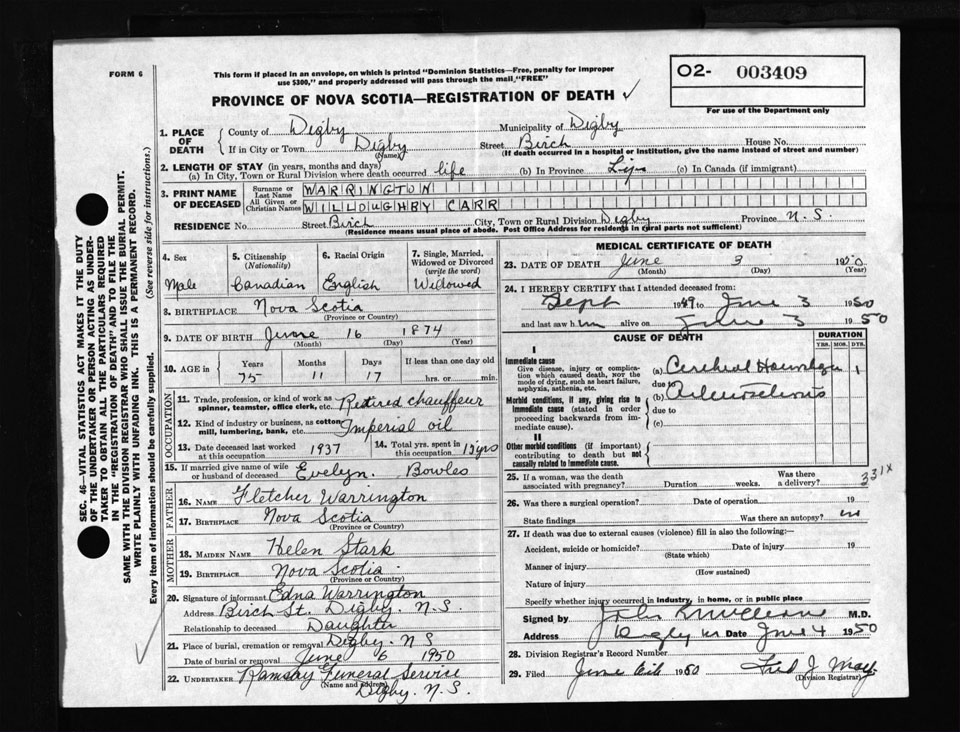 FORM 6
This form if placed in an envelope, on which is printed "Dominion Statistics—Free, penalty for improper
use $300," and properly addressed will pass through the mail "FREE"
O2- 003409
For use of the Department only
PROVINCE OF NOVA SCOTIA—REGISTRATION OF DEATH ✓
1. PLACE OF DEATH
County of Digby Municipality of Digby
If in City or Town Digby Street Birch House No.
(Name) (If death occurred in a hospital or institution, give the name instead of street and number)
2. LENGTH OF STAY (in years, months and days)
(a) In City, Town or Rural Division where death occurred life (b) In Province Life (c) In Canada (if immigrant)
3. PRINT NAME OF DECEASED
Surname or Last Name WARRINGTON
All Given or Christian Names WILLOUGHBY CARR
RESIDENCE No. Street Birch City, Town or Rural Division Digby Province N.S.
(Residence means usual place of abode. Post Office Address for residents in rural parts not sufficient)
4. Sex Male
5. Citizenship (Nationality) Canadian
6. Racial Origin English
7. Single, Married, Widowed or Divorced (write the word) Widowed
8. BIRTHPLACE Nova Scotia
(Province or Country)
9. DATE OF BIRTH June 16 1874
(Month) (Day) (Year)
10. AGE in Years 75 Months 11 Days 17 If less than one day old hrs. or min.
OCCUPATION
11. Trade, profession, or kind of work as spinner, teamster, office clerk, etc. Retired chauffeur
12. Kind of industry or business, as cotton mill, lumbering, bank, etc. Imperial oil
13. Date deceased last worked at this occupation 1937
14. Total yrs. spent in this occupation 12 yrs
15. If married give name of wife or husband of deceased Evelyn Bowles
FATHER
16. NAME Fletcher Warrington
17. BIRTHPLACE Nova Scotia
(Province or Country)
MOTHER
18. MAIDEN NAME Helen Stark
19. BIRTHPLACE Nova Scotia
(Province or Country)
20. Signature of informant Edna Warrington
Address Birch St. Digby. N.S.
Relationship to deceased Daughter
21. Place of burial, cremation or removal Digby. N S
Date of burial or removal June 6 1950
22. UNDERTAKER Ramsay Funeral Service
(Name and address) Digby. N.S.
MEDICAL CERTIFICATE OF DEATH
23. DATE OF DEATH June 3 1950
(Month) (Day) (Year)
24. I HEREBY CERTIFY that I attended deceased from:
Sept 1949 to June 3 1950
and last saw him alive on June 3 1950
CAUSE OF DEATH
DURATION
YRS. MOS. DYS.
I
Immediate cause
Give disease, injury or complication which caused death, not the mode of dying, such as heart failure, asphyxia, asthenia, etc.
(a) Cerebral Haemorrhage 1
due to
Morbid conditions, if any, giving rise to immediate cause (stated in order proceeding backwards from immediate cause).
(b) Arteriosclerosis
due to
(c)
II
Other morbid conditions (if important) contributing to death but not causally related to immediate cause.
25. If a woman, was the death associated with pregnancy? Duration weeks. Was there a delivery?
331X
26. Was there a surgical operation? Date of operation 19
State findings Was there an autopsy? no
27. If death was due to external causes (violence) fill in also the following:—
Accident, suicide or homicide? Date of injury 19
(State which)
Manner of injury
(How sustained)
Nature of injury
Specify whether injury occurred in industry, in home, or in public place
Signed by M.D.
Address Digby NS Date June 4 1950
28. Division Registrar's Record Number
29. Filed June 6th 1950 Fred J
(Division Registrar)
SEC. 46—VITAL STATISTICS ACT MAKES IT THE DUTY
OF THE UNDERTAKER OR PERSON ACTING AS UNDER-
TAKER TO OBTAIN ALL THE PARTICULARS REQUIRED
IN THE "REGISTRATION OF DEATH" AND TO FILE THE
SAME WITH THE DIVISION REGISTRAR WHO SHALL ISSUE THE BURIAL PERMIT.
WRITE PLAINLY WITH UNFADING INK. THIS IS A PERMANENT RECORD.
Every item of information should be carefully supplied. (See reverse side for instructions.)